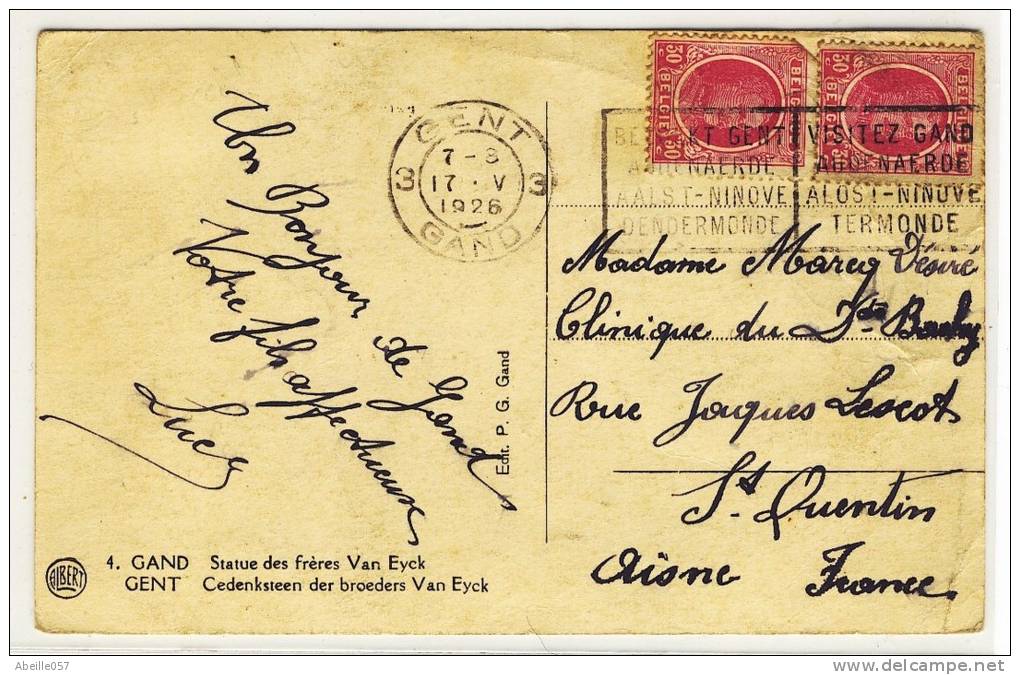 Un Bonjour de Gand
Votre fils affectueux
Lucq
GENT
7-8
3 17 · V 3
1926
GAND
GENT
AUDENAERDE
AALST-NINOVE
DENDERMONDE
VISITEZ GAND
AUDENAERDE
ALOST-NINOVE
TERMONDE
30 BELGIE BELGIQUE 30
30 BELGIE BELGIQUE
Madame Marcq Désiré
Clinique du
Rue Jacques Lescot
St. Quentin
Aisne France.
Edit. P. G. Gand
ALBERT
4. GAND Statue des frères Van Eyck
GENT Cedenksteen der broeders Van Eyck
Abeille057
http://www.delcampe.net